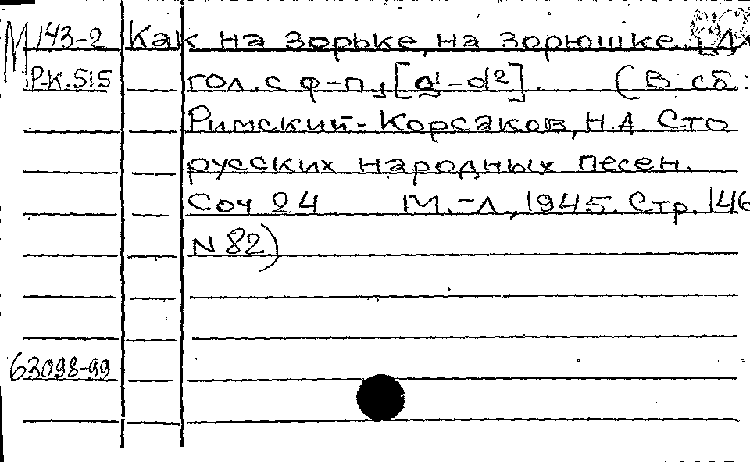 М 143-2 Как на зорьке, на зорюшке. Дл
Р-К.515 гол. с ф-п., [d¹-d²]. (В сб:
Римский-Корсаков, Н.А. Сто
русских народных песен.
Соч 24 М.-Л., 1945. Стр. 146
N 82)
63098-99